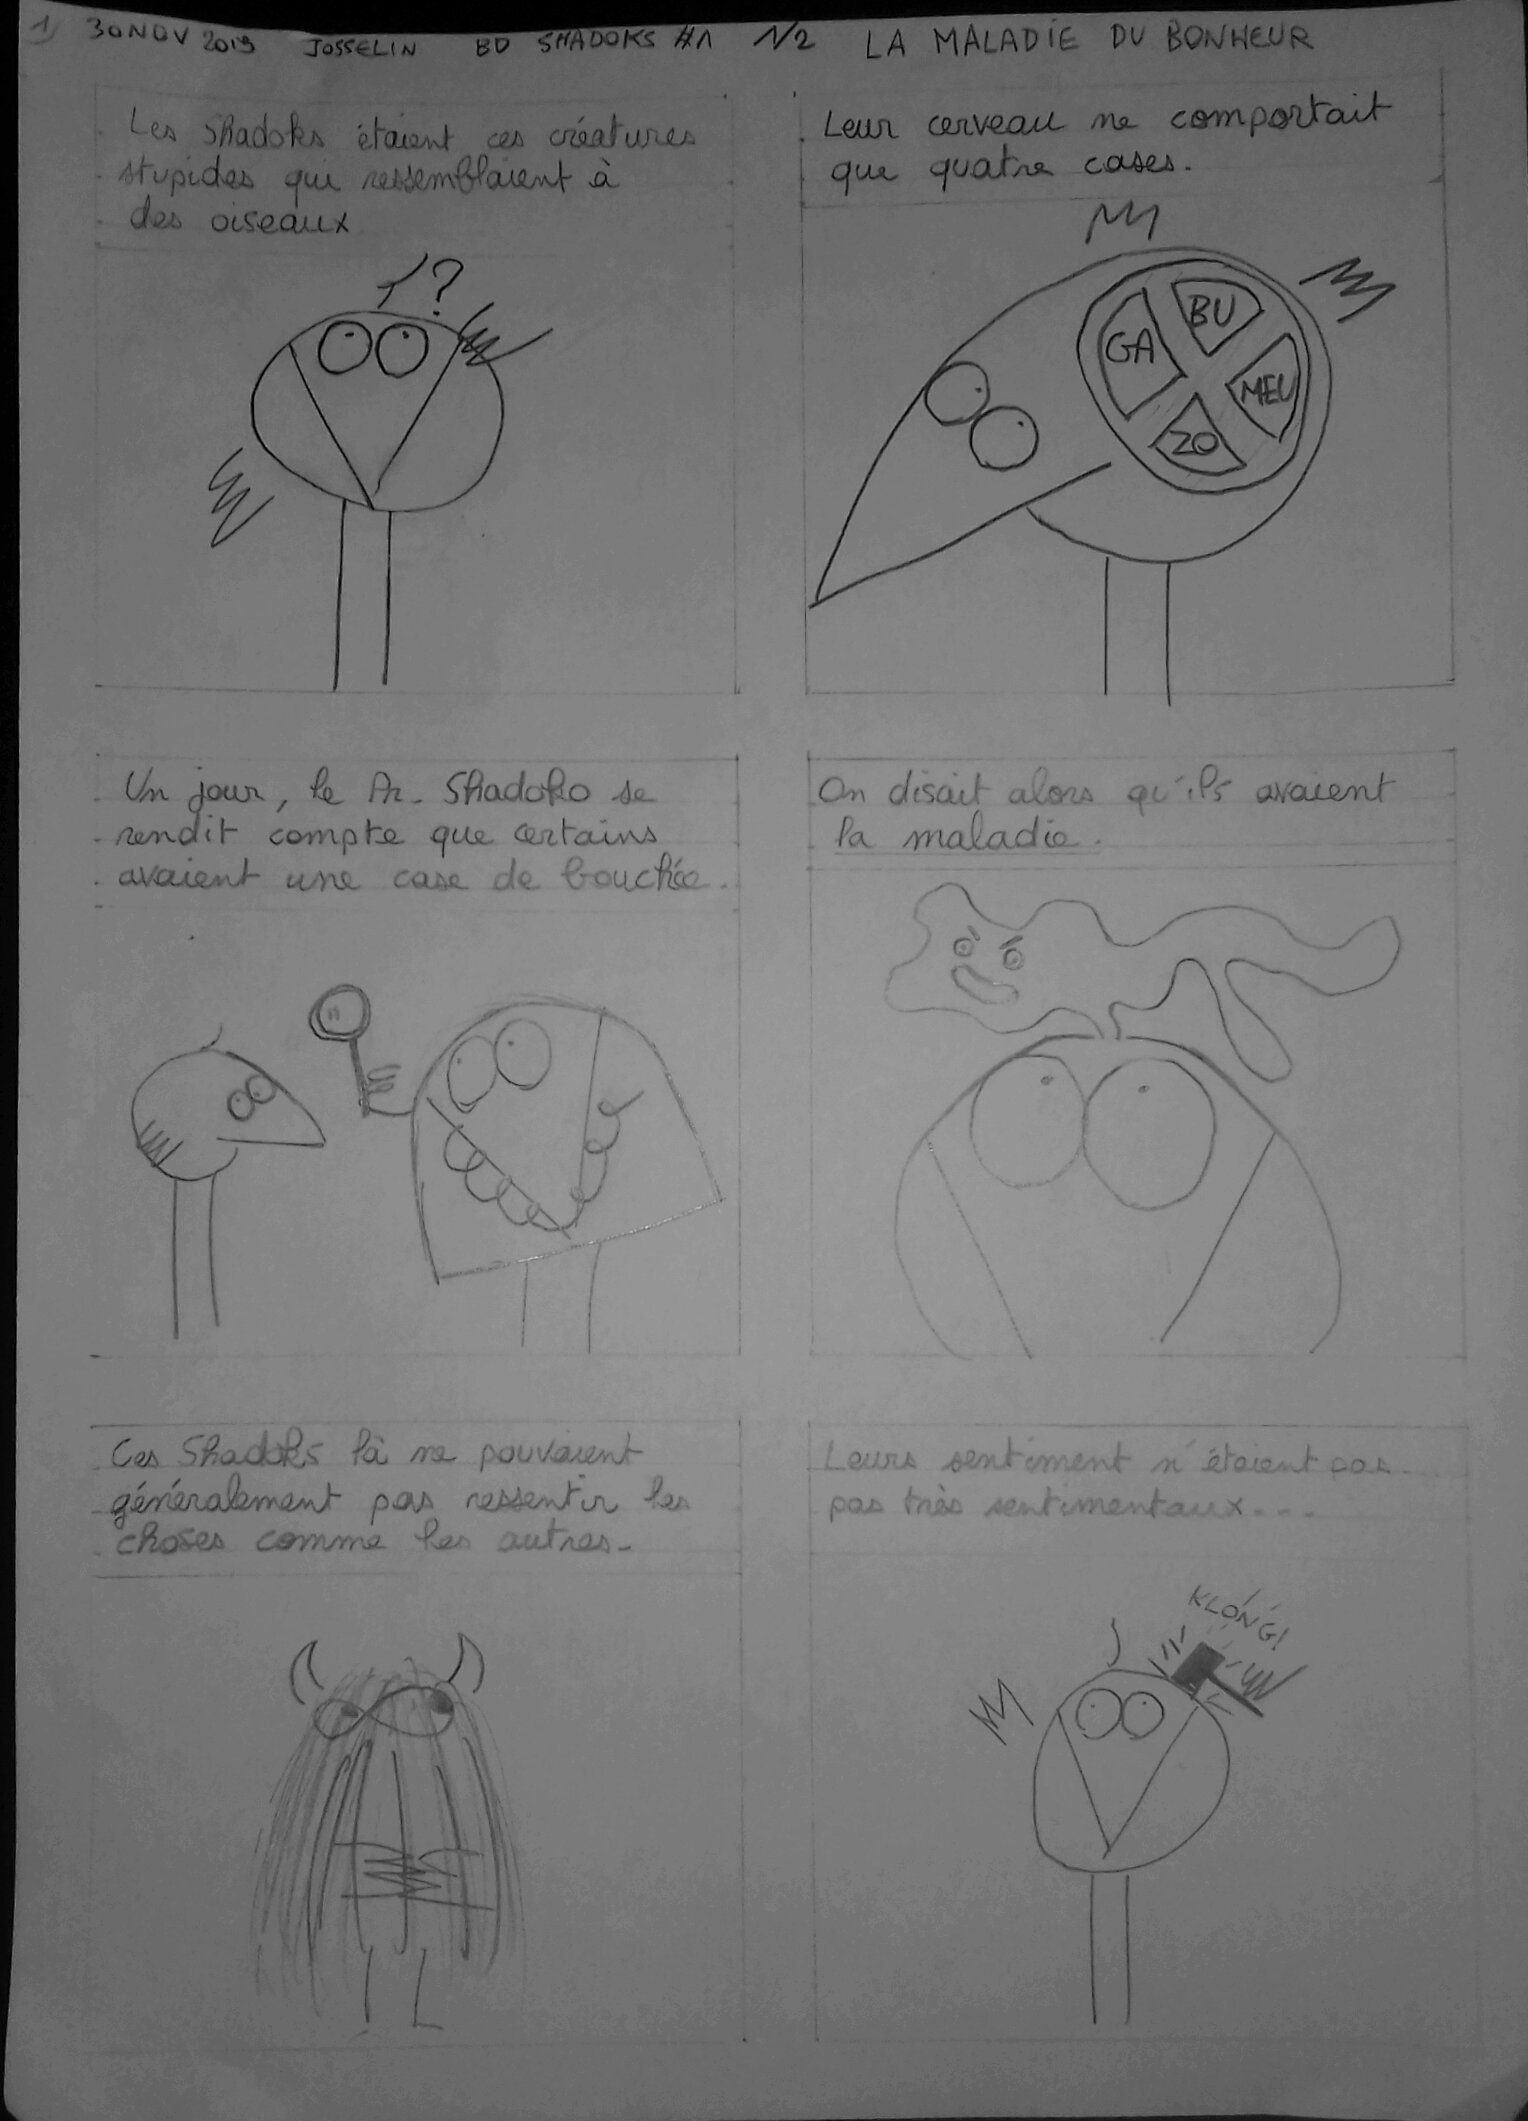 1) 30 NOV 2019 JOSSELIN BD SHADOKS #1 1/2 LA MALADIE DU BONHEUR
Les Shadoks étaient ces créatures
stupides qui ressemblaient à
des oiseaux
?
Leur cerveau ne comportait
que quatre cases.
GA
BU
MEU
ZO
Un jour, le Pr. Shadoko se
rendit compte que certains
avaient une case de bouchée.
On disait alors qu'ils avaient
la maladie.
Ces Shadoks là ne pouvaient
généralement pas ressentir les
choses comme les autres.
Leurs sentiment n'étaient pas
pas très sentimentaux...
KLONG!